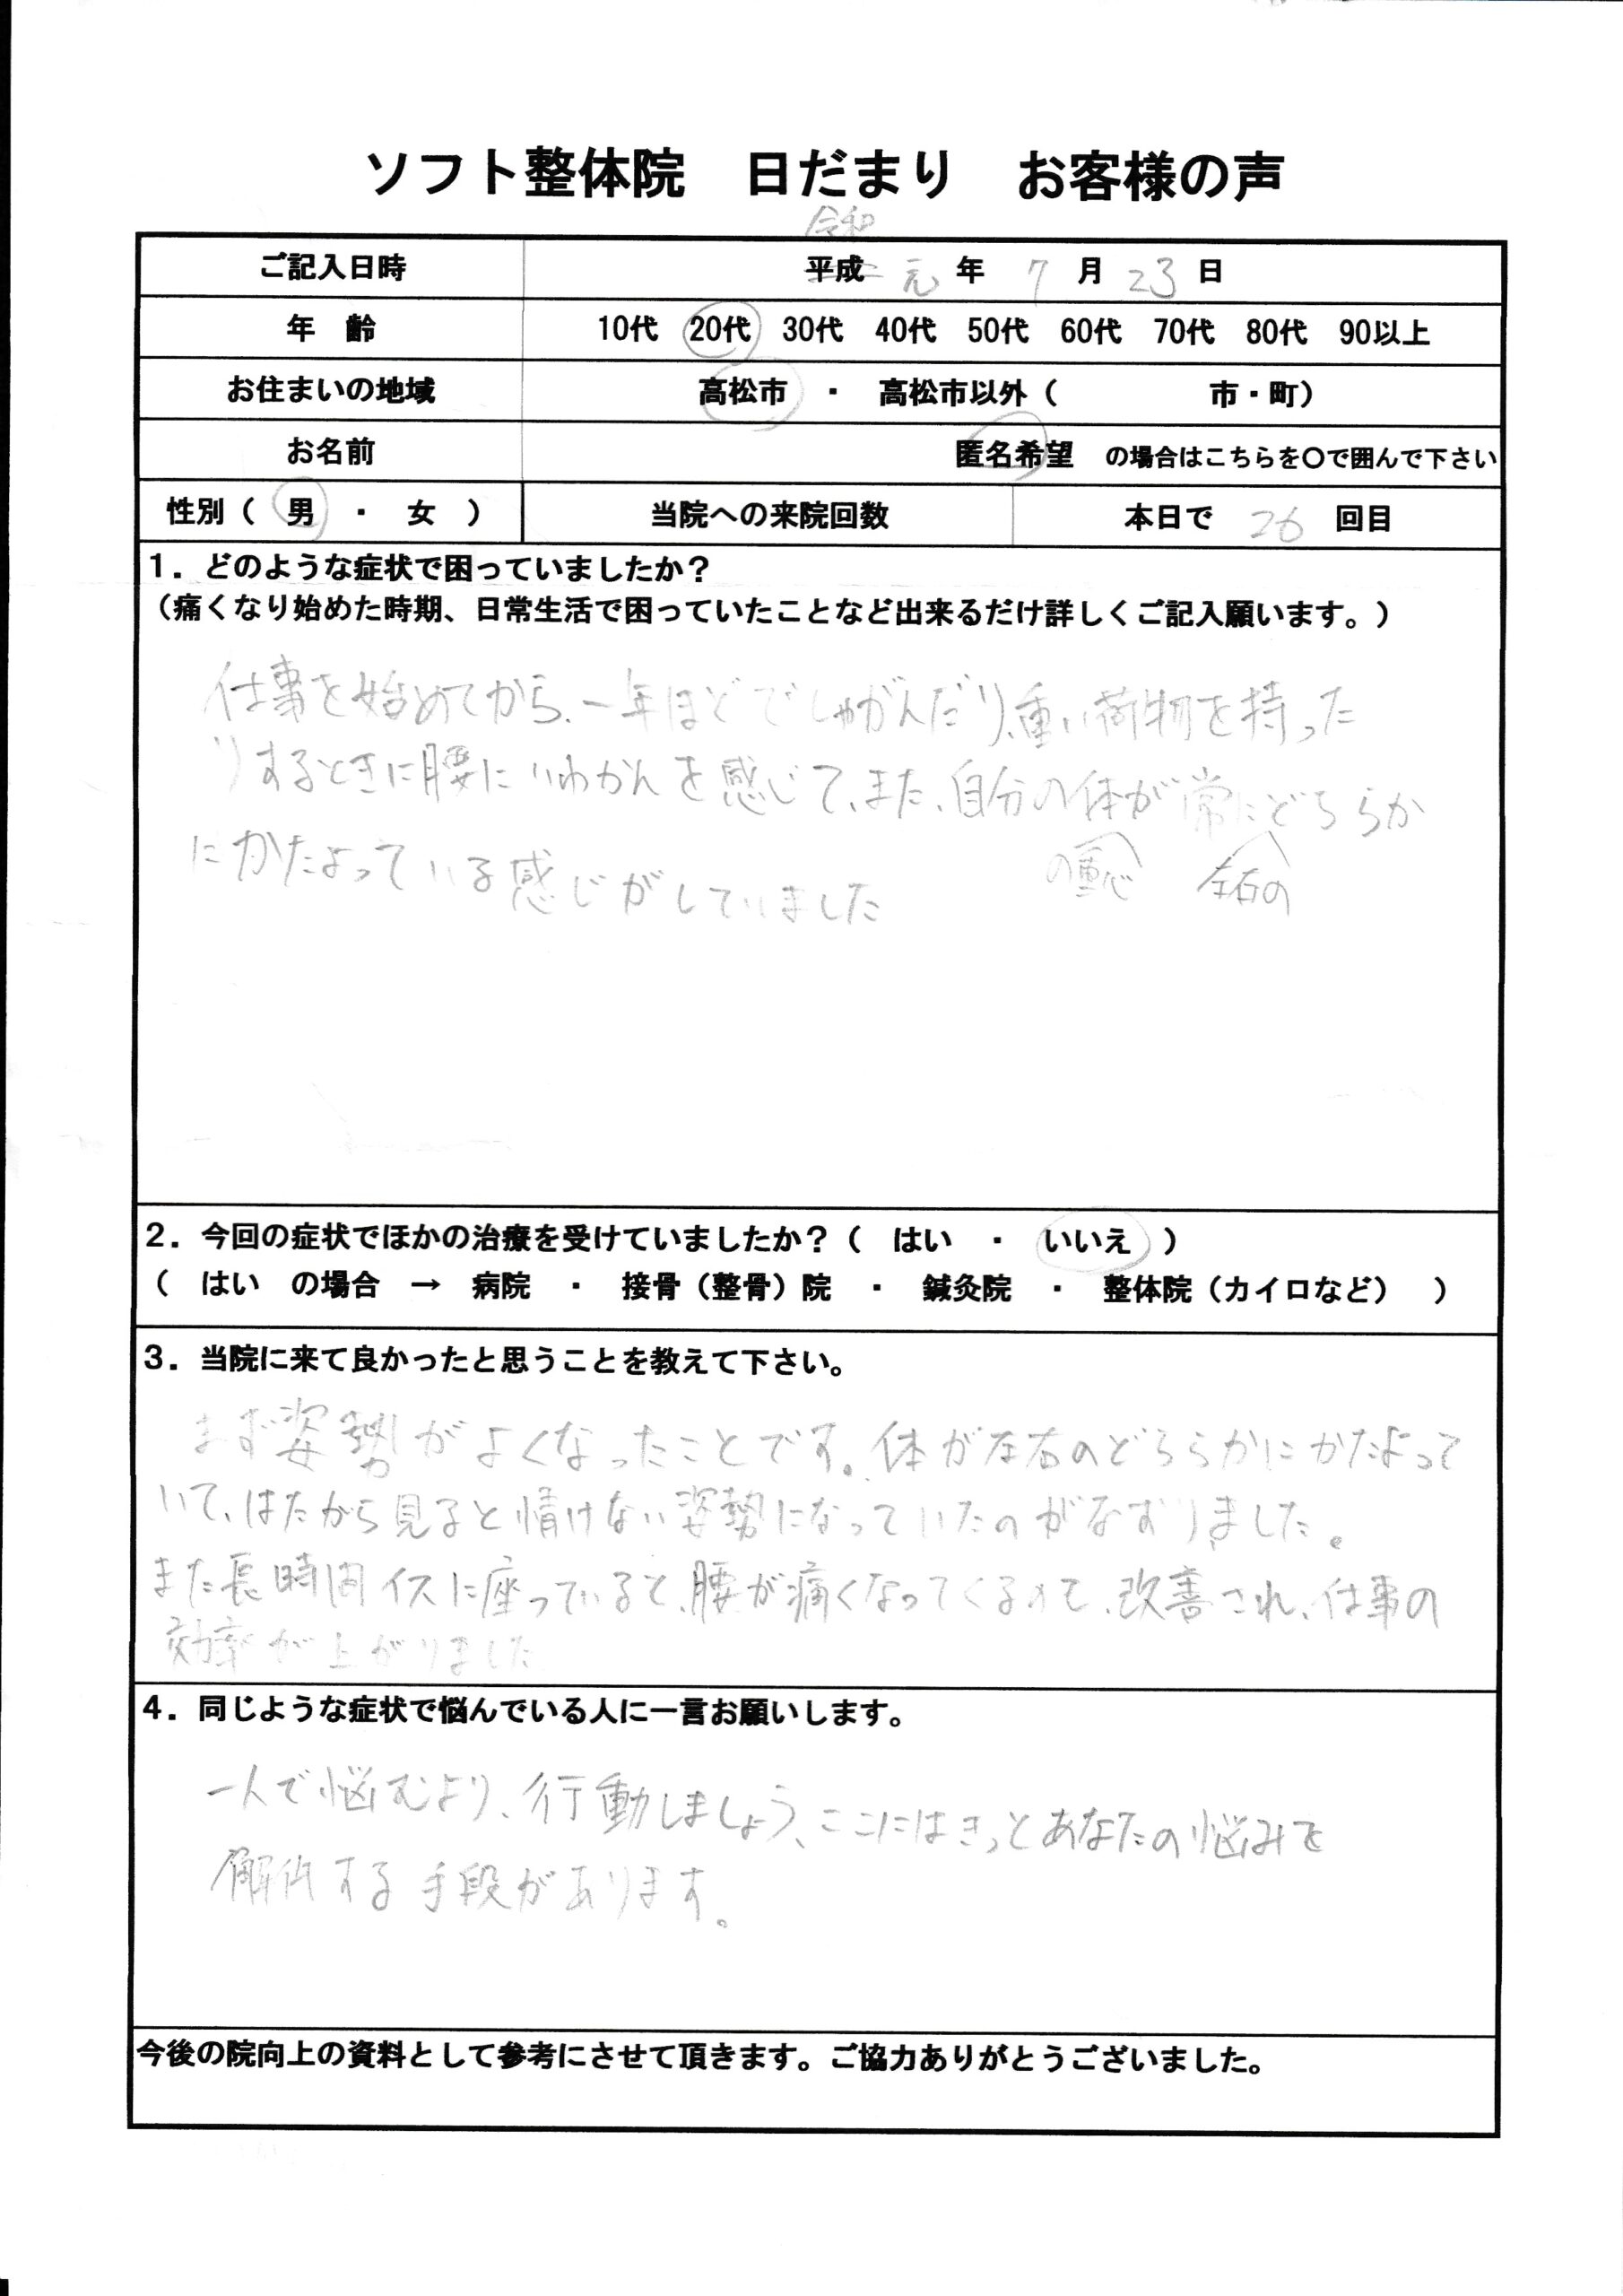 ソフト整体院　日だまり　お客様の声
令和
ご記入日時　平成 元 年 7 月 23 日
年　齢　10代　20代　30代　40代　50代　60代　70代　80代　90以上
お住まいの地域　高松市　・　高松市以外（　　　市・町）
お名前　匿名希望　の場合はこちらを〇で囲んで下さい
性別（　男　・　女　）　当院への来院回数　本日で 26 回目
1．どのような症状で困っていましたか？
（痛くなり始めた時期、日常生活で困っていたことなど出来るだけ詳しくご記入願います。）
仕事を始めてから、一年ほどでしゃがんだり、重い荷物を持った
りするときに腰にいわかんを感じて、また、自分の体が常にどちらか
の重心　左右の
にかたよっている感じがしていました
2．今回の症状でほかの治療を受けていましたか？（　はい　・　いいえ　）
（　はい　の場合　→　病院　・　接骨（整骨）院　・　鍼灸院　・　整体院（カイロなど）　）
3．当院に来て良かったと思うことを教えて下さい。
まず姿勢がよくなったことです。体が左右のどちらかにかたよって
いて、はたから見ると情けない姿勢になっていたのがなおりました。
また長時間イスに座っていると、腰が痛くなってくるのも、改善され、仕事の
効率が上がりました
4．同じような症状で悩んでいる人に一言お願いします。
一人で悩むより、行動しましょう、ここにはきっとあなたの悩みを
する手段があります。
今後の院向上の資料として参考にさせて頂きます。ご協力ありがとうございました。